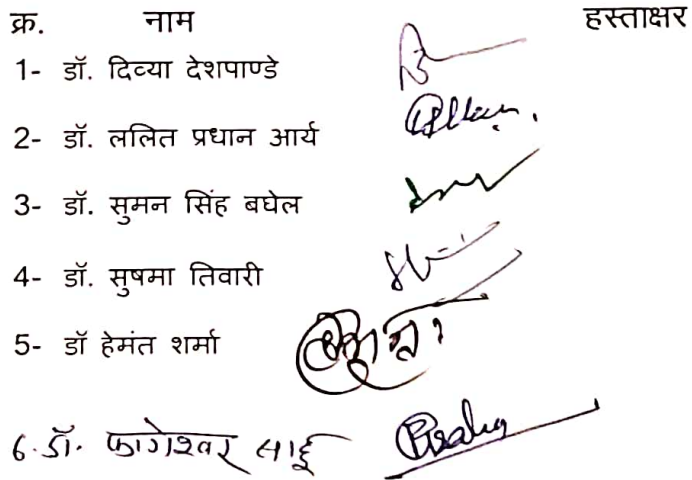 क्र. नाम हस्ताक्षर
1- डॉ. दिव्या देशपाण्डे
2- डॉ. ललित प्रधान आर्य
3- डॉ. सुमन सिंह बघेल
4- डॉ. सुषमा तिवारी
5- डॉ हेमंत शर्मा
6. डॉ. फागेश्वर साहू